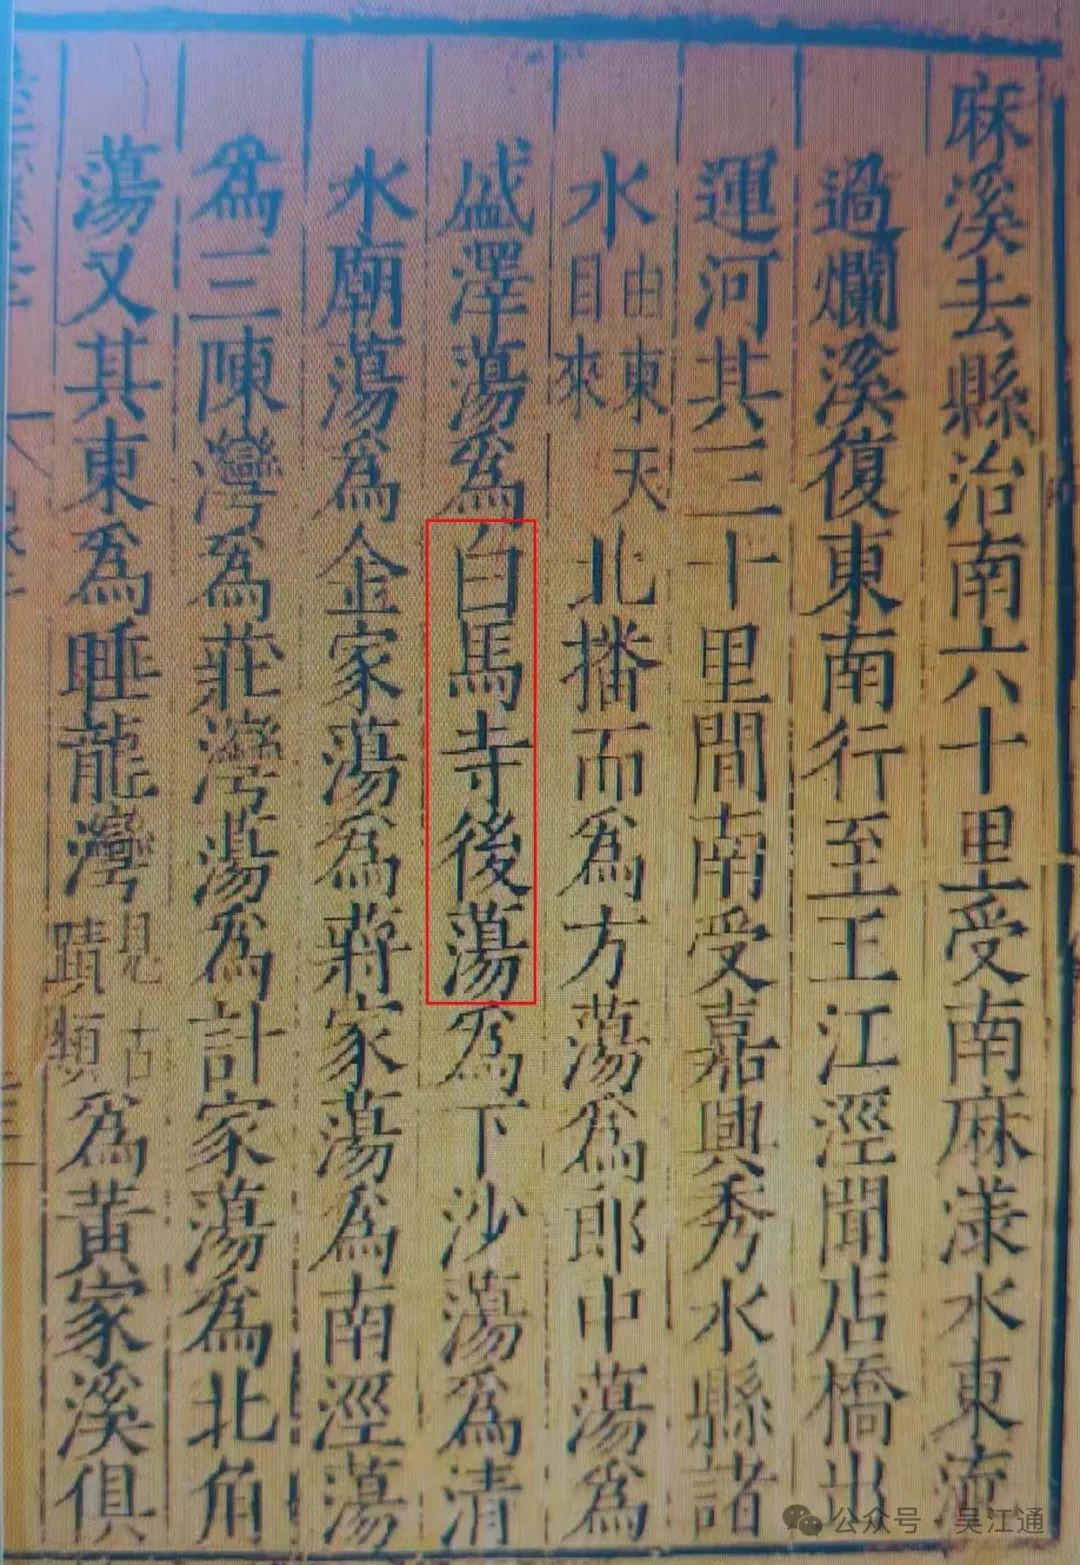 麻溪去縣治南六十里受南麻漾水東流
過爛溪復東南行至王江涇聞店橋出
運河其三十里間南受嘉興秀水縣諸
水由東天目來北播而爲方蕩爲郎中蕩爲
盛澤蕩爲白馬寺後蕩爲下沙蕩爲清
水廟蕩爲金家蕩爲蔣家蕩爲南涇蕩
爲三陳灣爲莊灣蕩爲計家蕩爲北角
蕩又其東爲睡龍灣見古蹟類爲黃家溪俱
公众号 · 吴江通